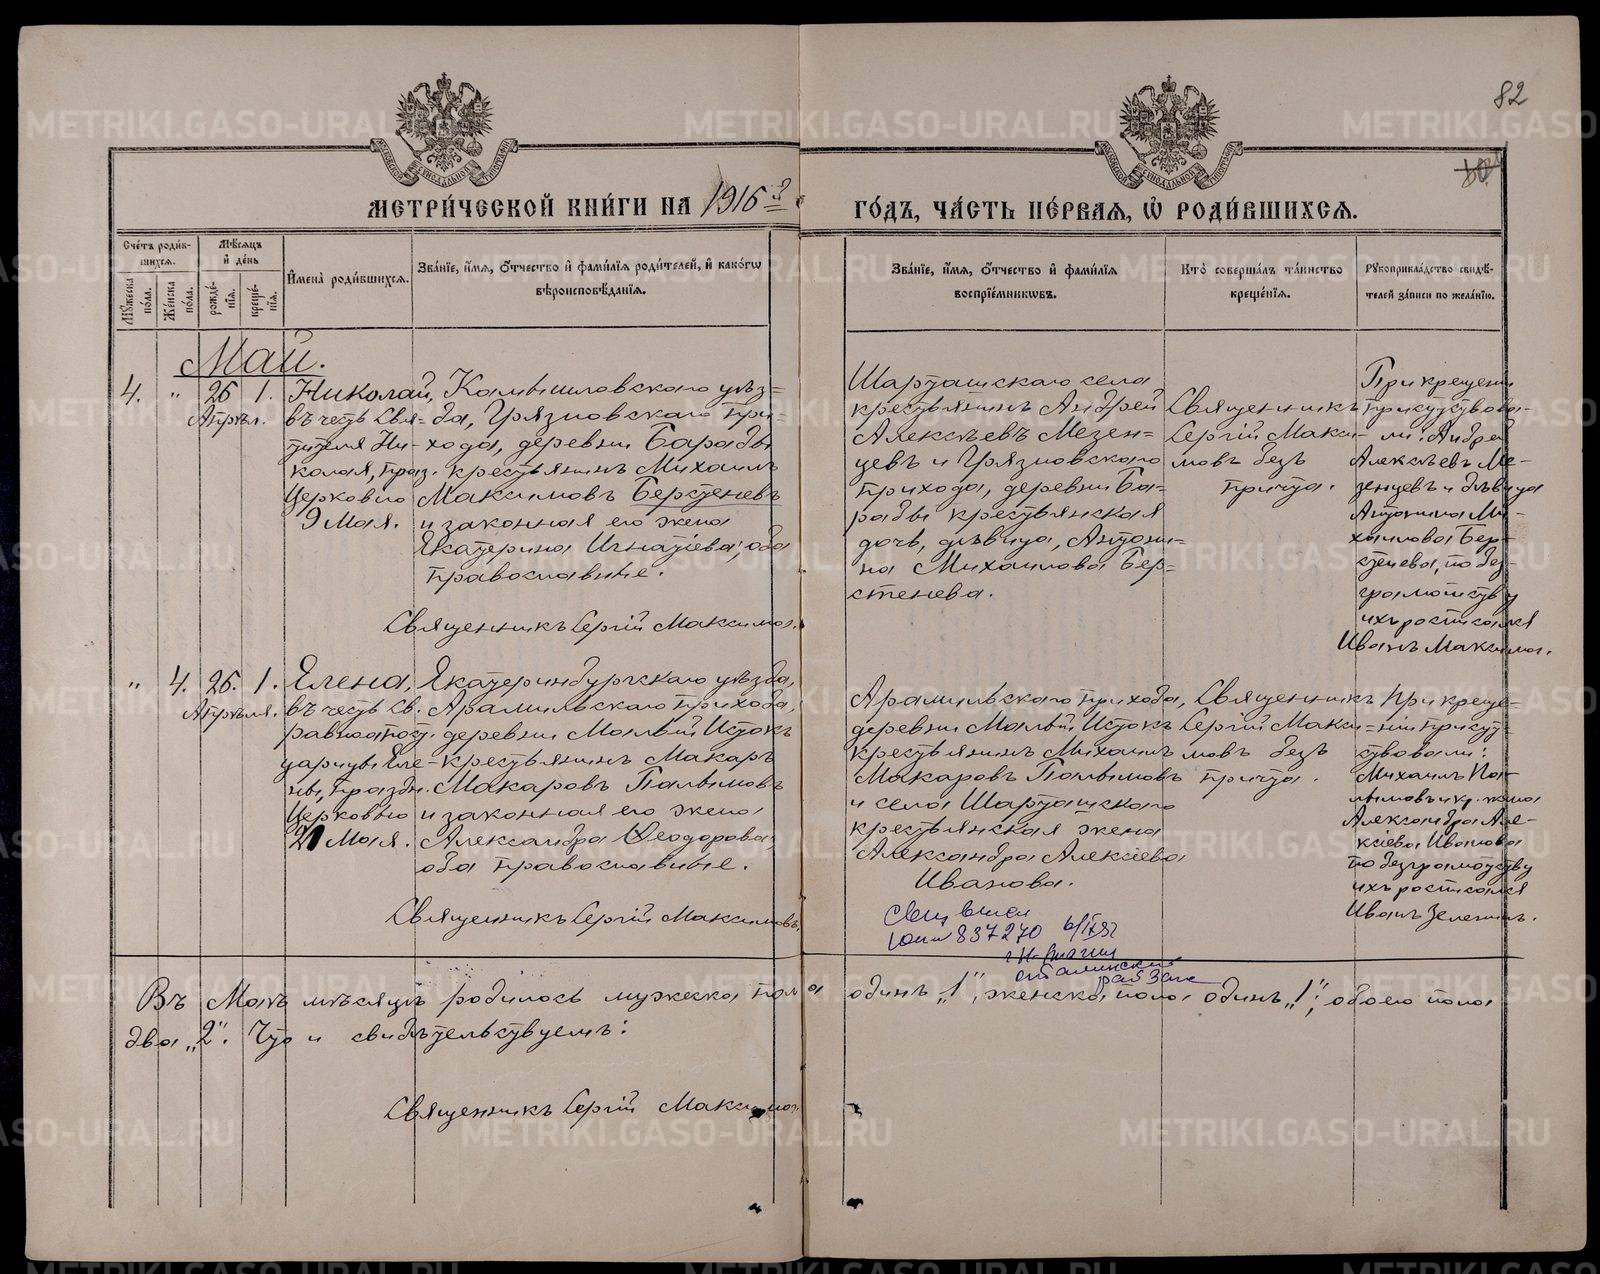 82
МЕТРИ́ЧЕСКОЙ КНИ́ГИ НА 1916 й ГО́ДЪ, ЧА́СТЬ ПЕ́РВАЯ, Ѡ҆ РОДИ́ВШИХСЯ.
Сче́тъ роди́в-
шихся.
Мѣ́сяцъ
и҆ де́нь
Мꙋ́жеска
по́ла.
Же́нска
по́ла.
рожде́-
нїя.
креще́-
нїя.
И҆мена̀ роди́вшихся.
Зва́нїе, и҆́мя, ѻ҆́тчество и҆ фами́лїя роди́телей, и҆ како́гѡ
вѣроисповѣ́данїя.
Зва́нїе, и҆́мя, ѻ҆́тчество и҆ фами́лїя
воспрїе́мникѡвъ.
Кто̀ соверша́лъ та́инство
креще́нїя.
Рꙋкоприкла́дство свидѣ́-
телей за́писи по жела́нїю.
Май.
4. " 26 1.
Апрѣл.
Николай,
въ честь Свя-
тителя Ни-
колая, праз.
Церковію
9 Мая.
Камышловскаго уѣз=
да, Грязновскаго при-
хода, деревни Барабы
крестьянинъ Михаилъ
Максимовъ Берстеневъ
и законная его жена
Екатерина Игнатіева, оба
православные.
Священникъ Сергій Максимов.
Шарташскаго села
крестьянинъ Андрей
Алексѣевъ Мезен=
цевъ и Грязновскаго
прихода, деревни Ба=
рабы крестьянская
дочь, дѣвица, Антони=
на Михаилова Бер=
стенева.
Священникъ
Сергій Макси-
мовъ безъ
причта.
При крещени
присутствова-
ли: Андрей
Алексѣевъ Ме-
зенцевъ и дѣвица
Антонина Ми-
хаилова Бер-
стенева, по без-
грамотству
ихъ росписался
Иванъ Максимов.
" 4. 26. 1.
Апрѣля.
Елена,
въ честь Св.
равноапост.
царицы Еле-
ны, праздн.
Церковью
21 Мая.
Екатеринбургскаго уѣзда,
Арамильскаго прихода,
деревни Малый Истокъ
крестьянинъ Макаръ
Макаровъ Палымовъ
и законная его жена
Александра Ѳеодорова,
оба православные.
Священникъ Сергій Максимовъ.
Арамильскаго прихода,
деревни Малый Истокъ
крестьянинъ Михаилъ
Макаровъ Палымовъ
и села Шарташскаго
крестьянская жена
Александра Алексіева
Иванова.
Священникъ
Сергій Макси=
мовъ безъ
причта.
При креще-
ніи присут-
ствовали:
Михаилъ Па-
лымовъ и кр. жена
Александра Але-
ксіева Иванова
по безграмотству
ихъ росписался
Иванъ Зеленин.
837270
Въ Маѣ мѣсяцѣ родилось мужеска пола одинъ „1", женска пола одинъ „1", обоего пола
два „2". Что и свидѣтельствуемъ:
Священникъ Сергій Максимов.